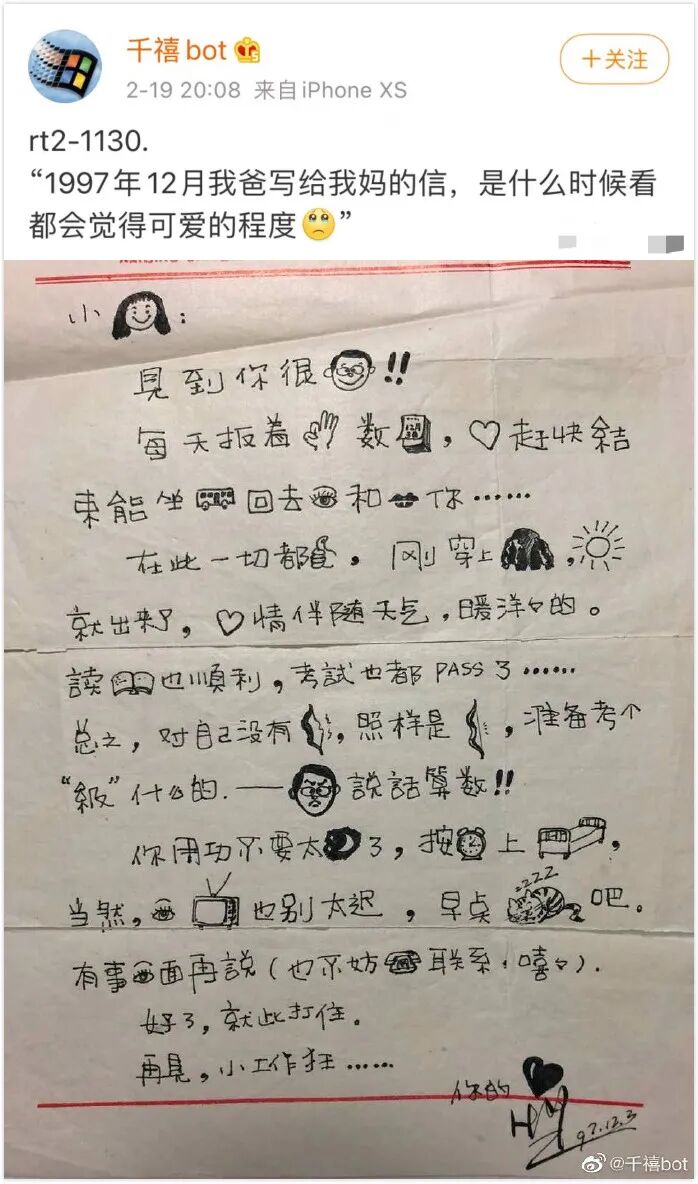 千禧bot
+关注
2-19 20:08 来自iPhone XS
rt2-1130.
“1997年12月我爸写给我妈的信，是什么时候看
都会觉得可爱的程度”
小：
見到你很!!
每天扳着数，赶快結
束能坐回去和你……
在此一切都，刚穿上，
就出来了，情伴随天气，暖洋々的。
讀也順利，考試也都PASS了……
总之，对自己没有，照样是，准备考个
“級”什么的.——說話算數!!
你用功不要太了，按上，
当然，也别太迟，早点吧。
有事面再説(也不妨联系·嘻々).
好了，就此打住。
再見，小工作狂……
你的
97.12.3
@千禧bot